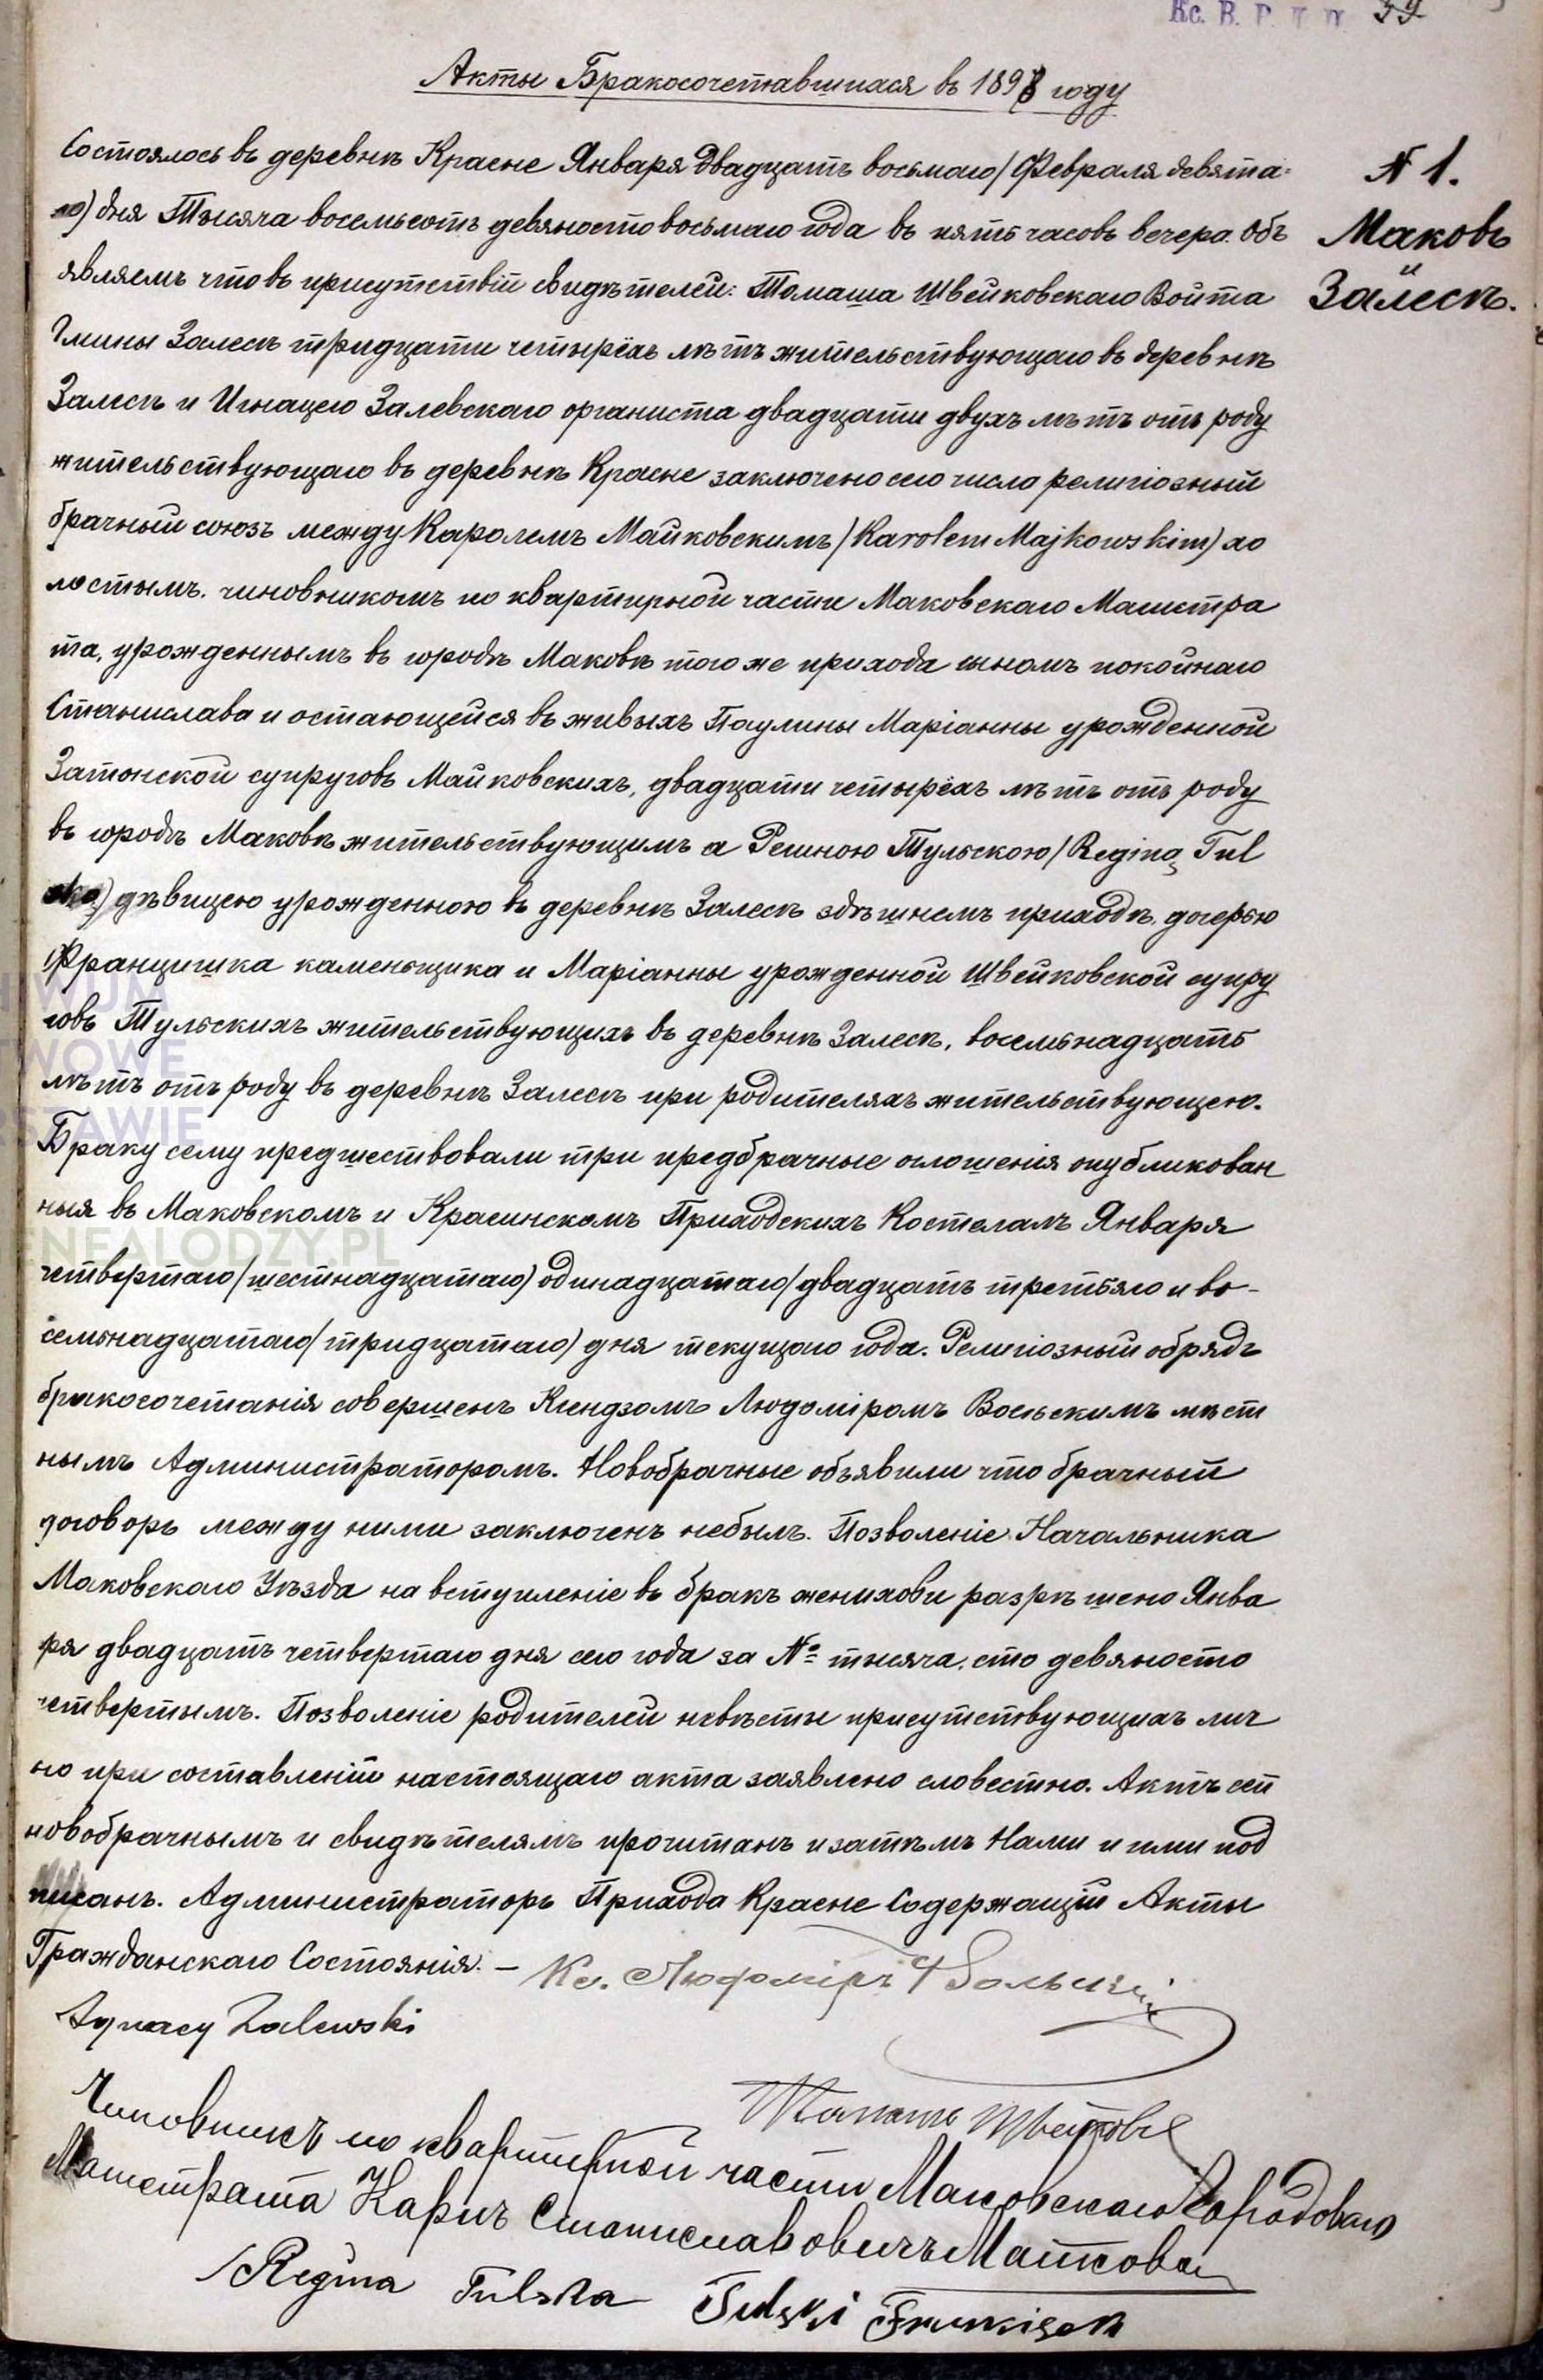 39
Акты Бракосочетавшихся въ 1898 году
№ 1.
Маковъ
Залескъ.
Состоялось въ деревнѣ Красне Января двадцать восьмаго/Февраля девята-
го) дня Тысяча восемьсотъ девяносто восьмаго года въ пять часовъ вечера. Объ
являемъ что въ присутствіи свидѣтелей: Томаша Швейковскаго Войта
Гмины Залескъ тридцати четырёхъ лѣтъ жительствующаго въ деревнѣ
Залескъ и Игнацего Залевскаго органиста двадцати двухъ лѣтъ отъ роду
жительствующаго въ деревнѣ Красне заключено сего числа религіозный
брачный союзъ между Каролемъ Майковскимъ/Karolem Majkowskim) хо
лостымъ. чиновникомъ по квартирной части Маковскаго Магистра
та, урожденнымъ въ городѣ Маковѣ того же прихода сыномъ покойнаго
Станислава и остающейся въ живыхъ Паулины Маріанны урожденной
Затонской супруговъ Майковскихъ, двадцати четырёхъ лѣтъ отъ роду
въ городѣ Маковѣ жительствующимъ а Региною Тульскою/Reginą Tul
ską) дѣвицею урожденною въ деревнѣ Залескъ здѣшнемъ приходѣ, дочерью
Францишка каменьщика и Маріанны урожденной Швейковской супру
говъ Тульскихъ жительствующихъ въ деревнѣ Залескъ, восемьнадцать
лѣтъ отъ роду въ деревнѣ Залескъ при родителяхъ жительствующею.
Браку сему предшествовали три предбрачные оглошенія опубликован
ныя въ Маковскомъ и Красинскомъ Приходскихъ Костелалъ Января
четвертаго/шестнадцатаго) одинадцатаго/двадцать третьяго и во-
семьнадцатаго/тридцатаго) дня текущаго года. Религіозный обрядъ
бракосочетанія совершенъ Ксендзомъ Людоміромъ Вольскимъ мѣст
нымъ Администраторомъ. Новобрачные объявили что брачный
договоръ между ними заключенъ небылъ. Позволеніе Начальника
Маковскаго Уѣзда на вступленіе въ бракъ женихови разрѣшено Янва
ря двадцать четвертаго дня сего года за № тысяча, сто девяносто
четвертымъ. Позволеніе родителей невѣсты присутствующихъ лич
но при составленіи настоящаго акта заявлено словестно. Актъ сей
новобрачнымъ и свидѣтелямъ прочитанъ и затѣмъ Нами и ими под
писанъ. Администраторъ Прихода Красне Содержащій Акты
Гражданскаго Состоянія. – Кс. Людоміръ Вольскій
Ignacy Zalewski
Томашъ
Чиновникъ по квартирной части Маковскаго Городоваго
Магистрата Карлъ Станиславовичъ
Regina Tulska Tulski Franciszek
ARCHIWUM
PAŃSTWOWE
WARSZAWIE
GENEALODZY.PL